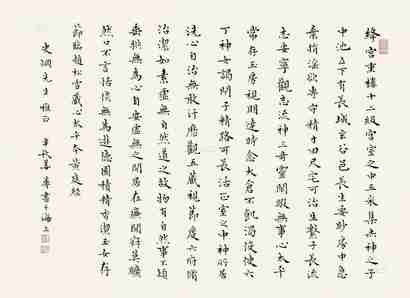 絳宮重樓十二級宮室之中五氣集赤神之子
中池立下有長城玄谷邑長生要眇房中急
棄捐淫欲專守精寸田尺宅可治生繫子長流
志安寧觀志流神三奇靈閑暇無事心太平
常存玉房視明達時念太倉不飢渴役使六
丁神女謁閉子精路可長活正室之中神所居
洗心自治無敢汙歷觀五藏視節度六府脩
治潔如素虛無自然道之故物有自然事不煩
垂拱無為心自安虛無之居在廉間寂寞曠
然口不言恬惔無為遊德園積精香潔玉女存
節臨趙松雪藏心太平本黃庭經
史綱先生雅正 辛秋善 書于海上